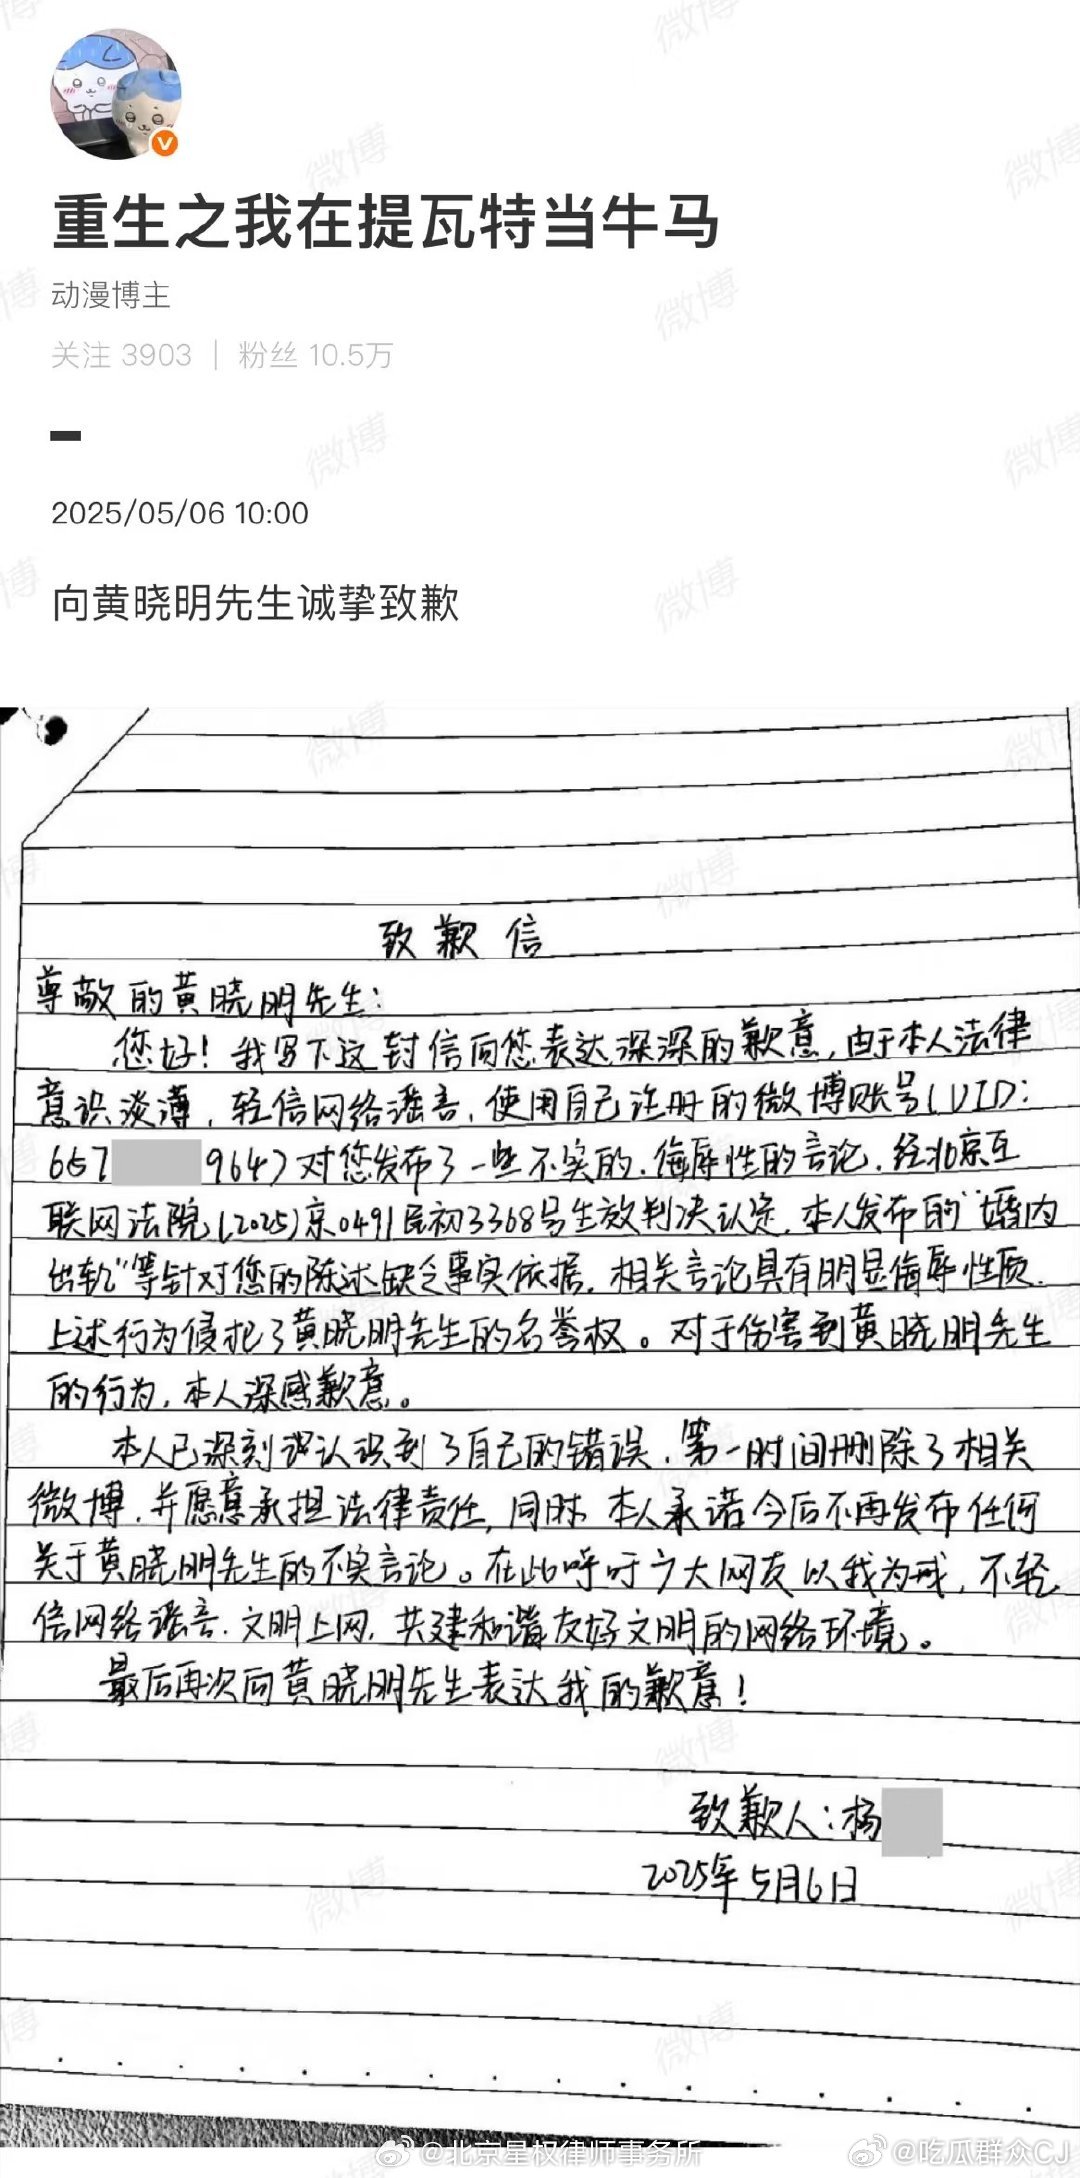 重生之我在提瓦特当牛马
动漫博主
关注 3903 | 粉丝 10.5万
2025/05/06 10:00
向黄晓明先生诚挚致歉
致歉信
尊敬的黄晓明先生：
您好！我写下这封信向您表达深深的歉意，由于本人法律
意识淡薄，轻信网络谣言，使用自己注册的微博账号(UID:
657 9647对您发布了一些不实的、侮辱性的言论，经北京互
联网法院(2025)京0491民初3368号生效判决认定，本人发布的“婚内
出轨”等针对您的陈述缺乏事实依据，相关言论具有明显侮辱性质，
上述行为侵犯了黄晓明先生的名誉权。对于伤害到黄晓明先生
的行为，本人深感歉意。
本人已深刻认识到了自己的错误，第一时间删除了相关
微博，并愿意承担法律责任，同时，本人承诺今后不再发布任何
关于黄晓明先生的不实言论。在此呼吁广大网友以我为戒，不轻
信网络谣言，文明上网，共建和谐友好文明的网络环境。
最后再次向黄晓明先生表达我的歉意！
致歉人：杨
2025年5月6日
@北京星权律师事务所
@吃瓜群众CJ
微博